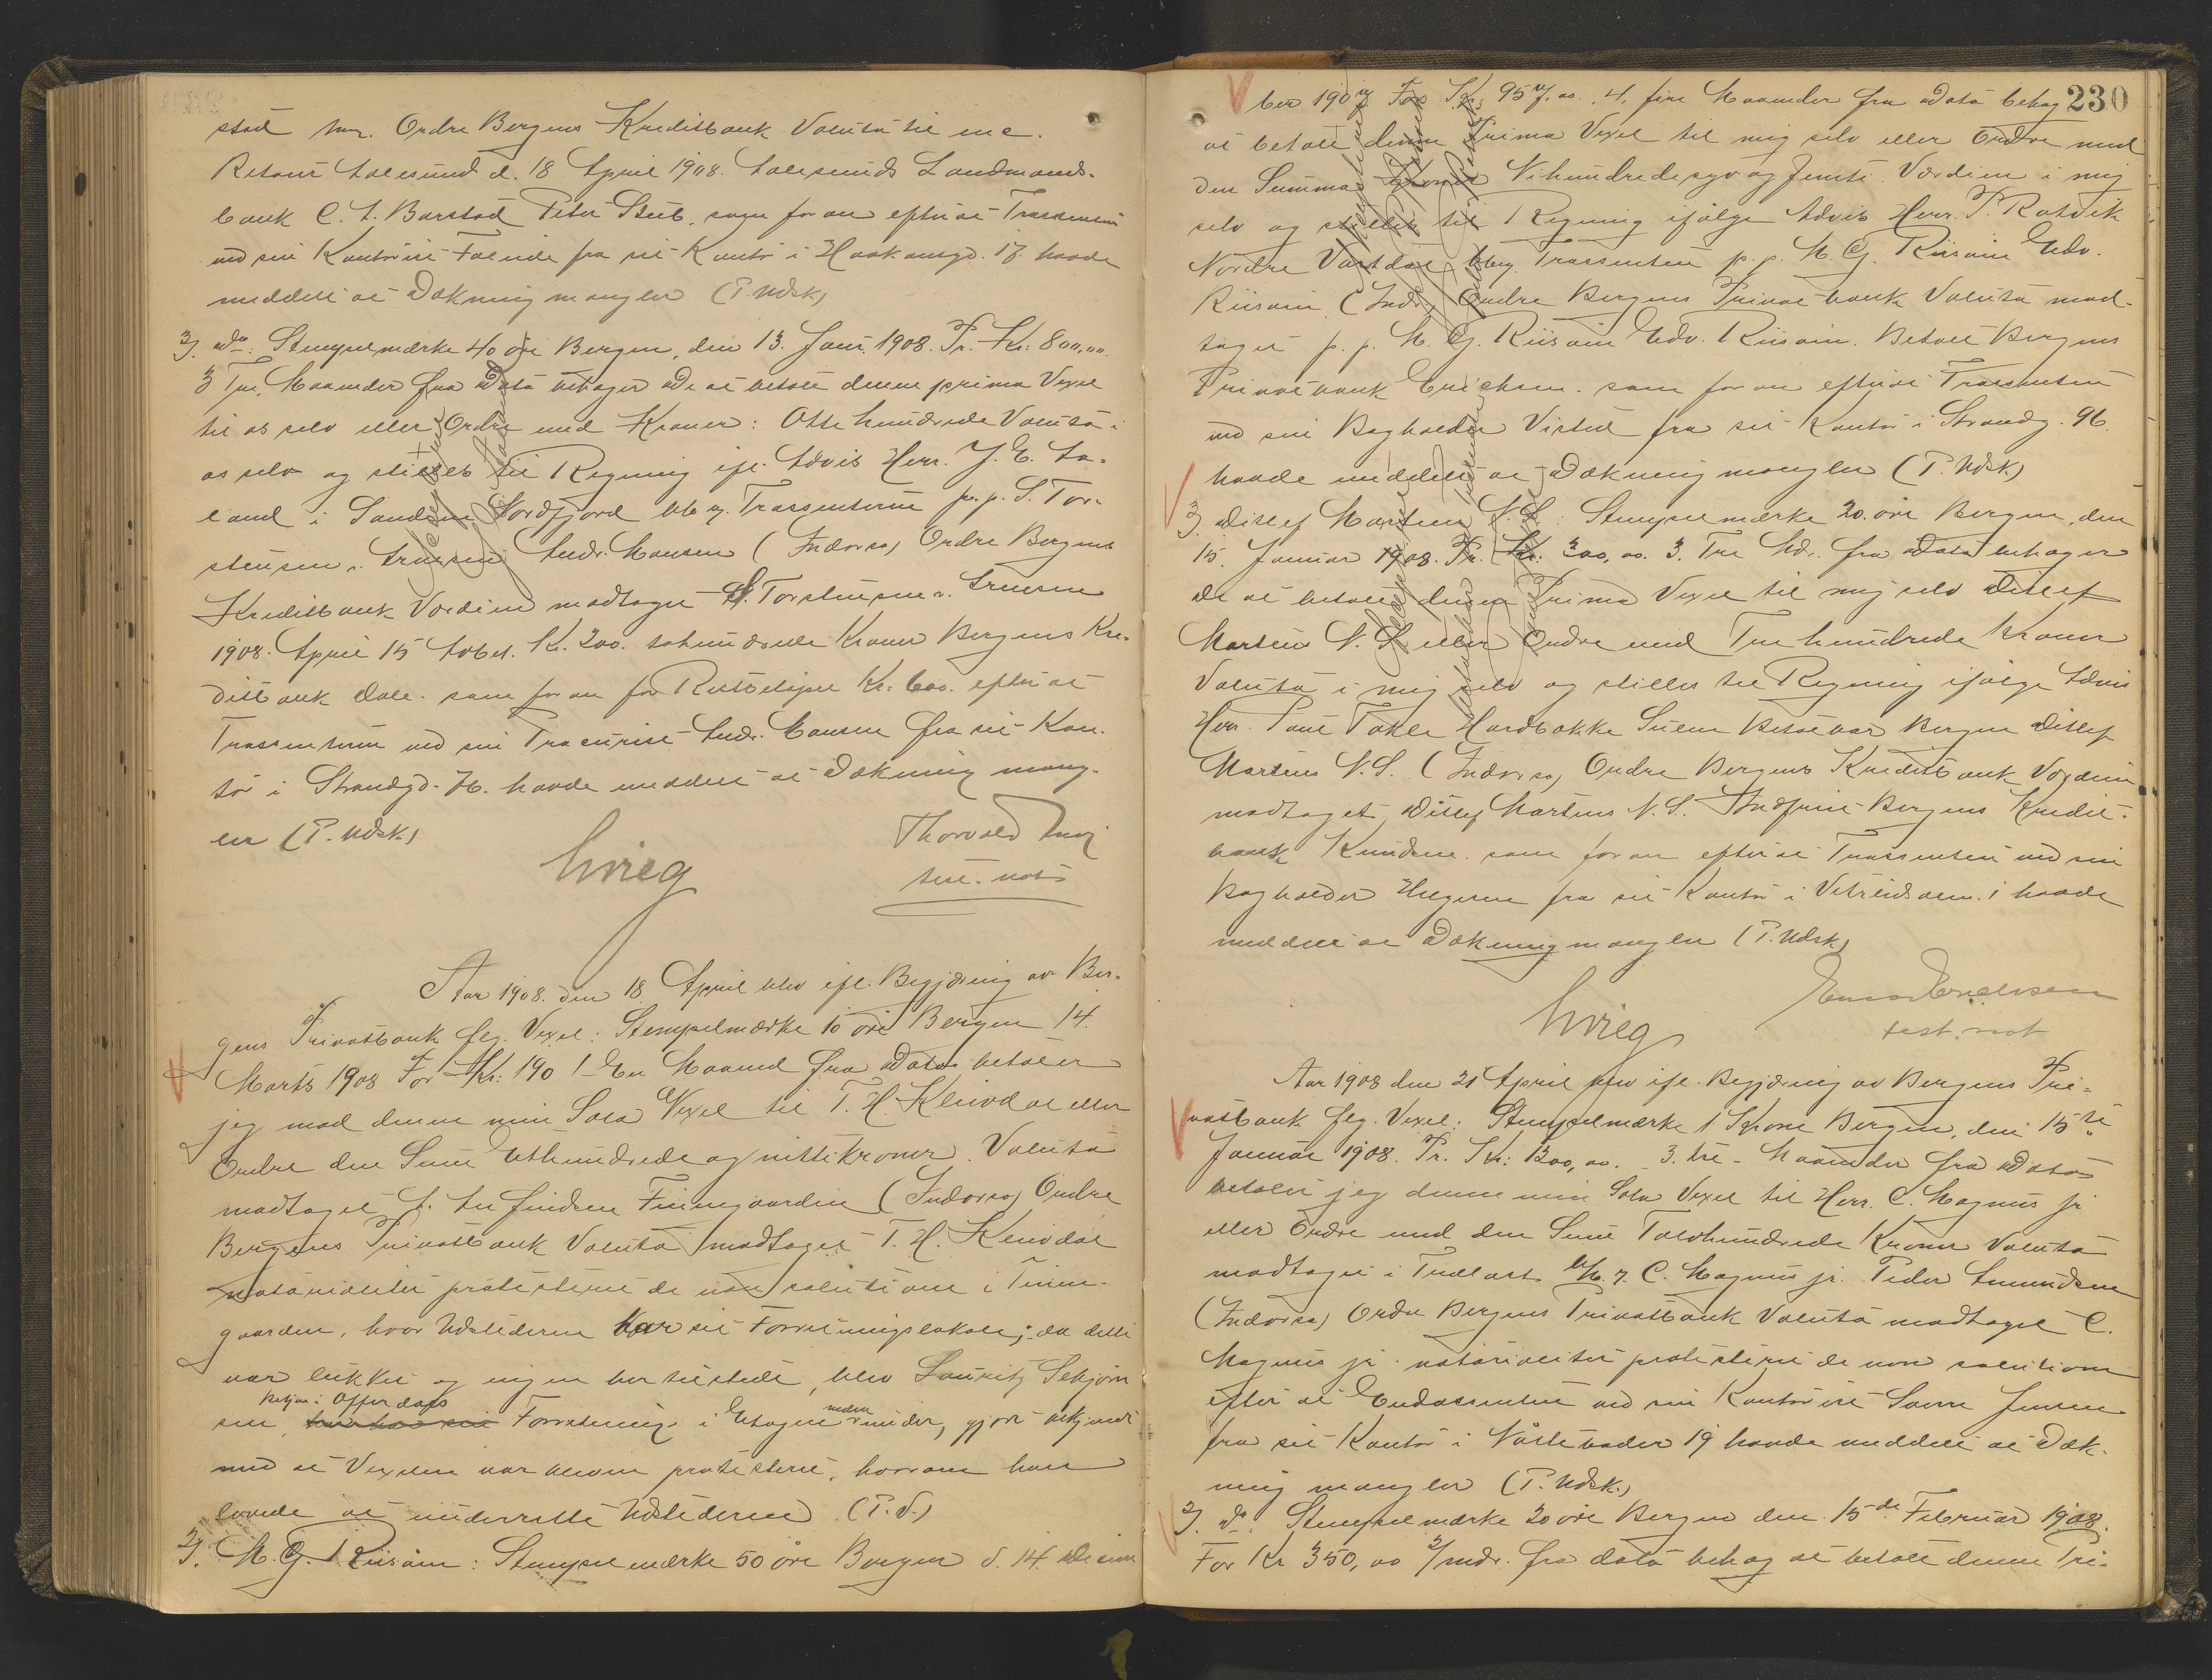 stad mr. Ordre Bergens Kreditbank Valuta til inc.
Retour Aalesund d. 18 April 1908. Aalesunds Landmands-
bank C. A. Barstad Peter Steb, som foran efterat Trassenten
ved sin Kontorist Falnide fra sit Kontor i Haakonsgd. 17 havde
meddelt at Dækning mangler (P. Udsk)
3). do: Stempelmærke 40 øre Bergen, den 13. Janr. 1908. Pr. Kr: 800,00.
3 Tre Maaneder fra Dato behager De at betale denne prima Vexel
til os selv eller Ordre med Kroner: Otte hundrede Valuta i
os selv og stilles til Regning ifl. Advis Herr. J. E. Aa-
land i Sandene Nordfjord bleg. Trassenterne p. p. S. Tor-
stensen & Arnesen Andr. Hansen (Indorso) Ordre Bergens
Kreditbank Værdien modtaget S. Torstensen & Arnesen
1908. April 15 Afbet. Kr. 200. tohundrede Kroner Bergens Kre-
ditbank Dale. som foran for Restbeløpet Kr: 600. efterat
Trassenterne ved sin Procurist Andr. Hansen fra sit Kon-
tor i Strandgd. 76. havde meddelt at Dækning mang-
ler (P. Udsk)
Grieg
Thorvald
test. not
Aar 1908. den 18. April blev ifl. Begjæring av Ber-
gens Privatbank flg. Vexel: Stempelmærke 10 øre Bergen 14.
Marts 1908 For Kr: 190 1 En Maaned fra Dato betaler
jeg mod denne min Sola Vexel til T. H. Kleivdal eller
Ordre den Sum Ethundrede og nitti kroner. Valuta
modtaget A. Andfindsen Finnegaarden (Indorso) Ordre
Bergens Privatbank Valuta modtaget T. H. Kleivdal
notarialiter protesteret de non solutione i Finne-
gaarden, hvor Udstederen har sit Forretningslokale; da dette
var lukket og ingen var tilstede, blev Lauritz Schjøn
Betjen i Offerdals
sen, Forretning i Etagen nedenunder, gjort bekjendt
med at Vexelen var bleven protesteret, hvorom han
lovede at underrette Udstederen (P. S.)
2). M. G. Riisøen: Stempelmærke 50 øre Bergen d. 14. Decem
230
ber 1907 For Kr. 957,00. 4, fire Maaneder fra Dato behag
at betale denne Prima Vexel til mig selv eller Ordre med
den Summa Kroner Nihundredesyv og femti Værdien i mig
selv og stilles til Regning ifølge Advis Herr. P. Ratvik
Nordre Vartdal bleg. Trassenten p. p. M. G. Riisøen Edv.
Riisøen. (Inds.) Ordre Bergens Privatbank Valuta mod-
taget p. p. M. G. Riisøen Edv. Riisøen. Betalt Bergens
Privatbank Erichsen. som foran efterat Trassenten
ved sin Bogholder Visted fra sit Kontor i Strandg. 96.
havde meddelt at Dækning mangler (P. Udsk)
3) Ditlef Martens N. S.: Stempelmærke 20. øre Bergen, den
15. Januar 1908. Pr. Kr. 300,00. 3. Tre Mdr. fra Dato behager
De at betale denne Prima Vexel til mig selv Ditlef
Martens N. S. eller Ordre med Tre hundrede Kroner
Valuta i mig selv og stilles til Regning ifølge Advis
Herr. Paul Takle Hardbakke Sulen Betalbar Bergen Ditlef
Martens N. S. (Indorso) Ordre Bergens Kreditbank Værdien
modtaget Ditlef Martens N. S. Indfriet Bergens Kredit-
bank Knudsen. som foran efterat Trassenten ved sin
Bogholder Helgesen fra sit Kontor i Vetrlidsalm. 1 havde
meddelt at Dækning mangler (P. Udsk)
Grieg
Einar Erichsen
test. not
Aar 1908 den 21 April blev ifl. Begjæring av Bergens Pri-
vatbank flg. Vexel: Stempelmærke 1 Krone Bergen, den 15de
Januar 1908. Pr. Kr: 1200,00. 3. tre. Maaneder fra Dato
betaler jeg denne min Sola Vexel til Herr. C. Magnus jr
eller Ordre med den Sum Tolvhundrede Kroner Valuta
modtaget i C. Magnus jr. Peder Amundsen
(Indorso) Ordre Bergens Privatbank Valuta modtaget C.
Magnus jr. notarialiter protesteret de non solutione
efter at Endossenten ved sin Kontorist Jensen
fra sit Kontor i Vaskebader 19 havde meddelt at Dæk-
ning mangler (P. Udsk.)
2). do: Stempelmærke 20 øre Bergen den 15de Februar 1908.
For Kr 350,00 2/mdr. fra dato behag at betale denne Pri-